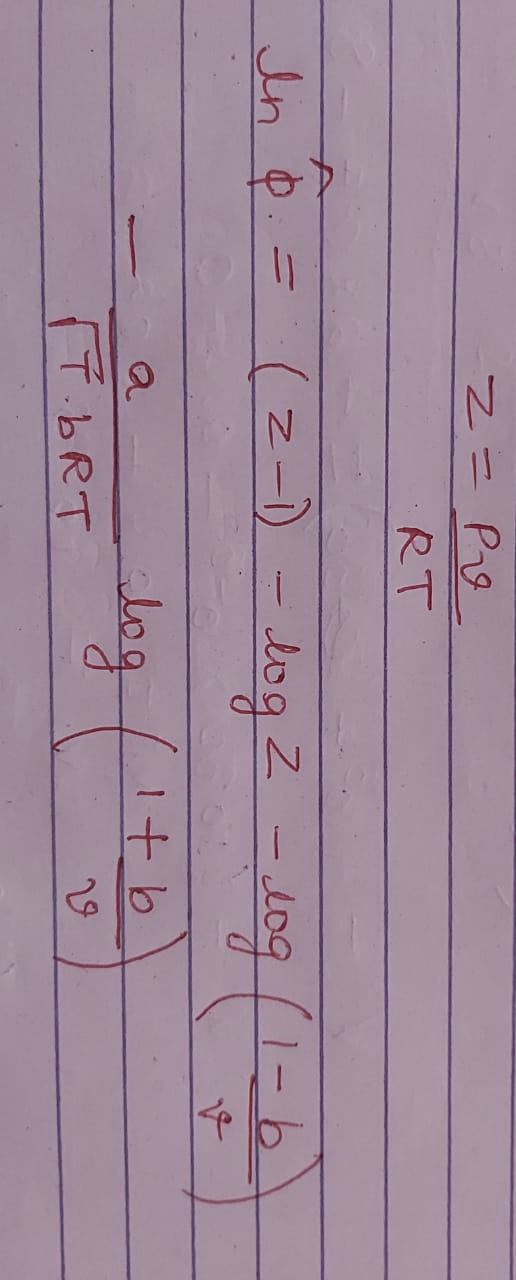 Z = Pv/RT
ln φ̂ = (Z-1) - log Z - log (1 - b/v)
- a/(√T bRT) log (1 + b/v)